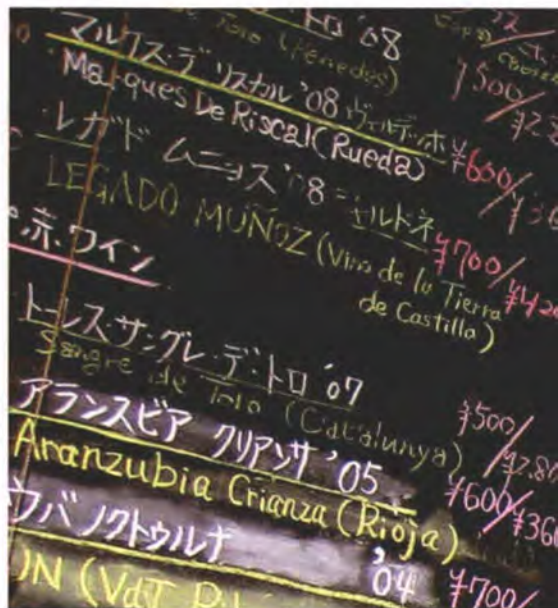 トロ '08
de Toro (Penedes)
¥500/
マルケス・デ リスカル '08 ヴェルデッホ
Marques De Riscal (Rueda)
¥600/
レガド ムニョス '08
LEGADO MUÑOZ (Vino de la Tierra
de Castilla)
¥700/
赤・ワイン
トーレス・サングレ・デ・トロ '07
Sangre de Toro (Catalunya)
¥500/
アランスビア クリアンサ '05
Aranzubia Crianza (Rioja)
¥600/¥360
ウバ ノクトゥルナ '04
¥700/